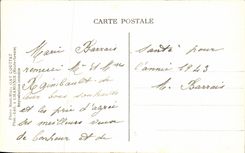 CARTE POSTALE
Marie Barrais
remercie Mr et Mme
Raimbault de
leur bons souhaits
et les prie d'agréer
ses meilleurs vœux
de bonheur et de
santé pour
l'année 1943
M. Barrais